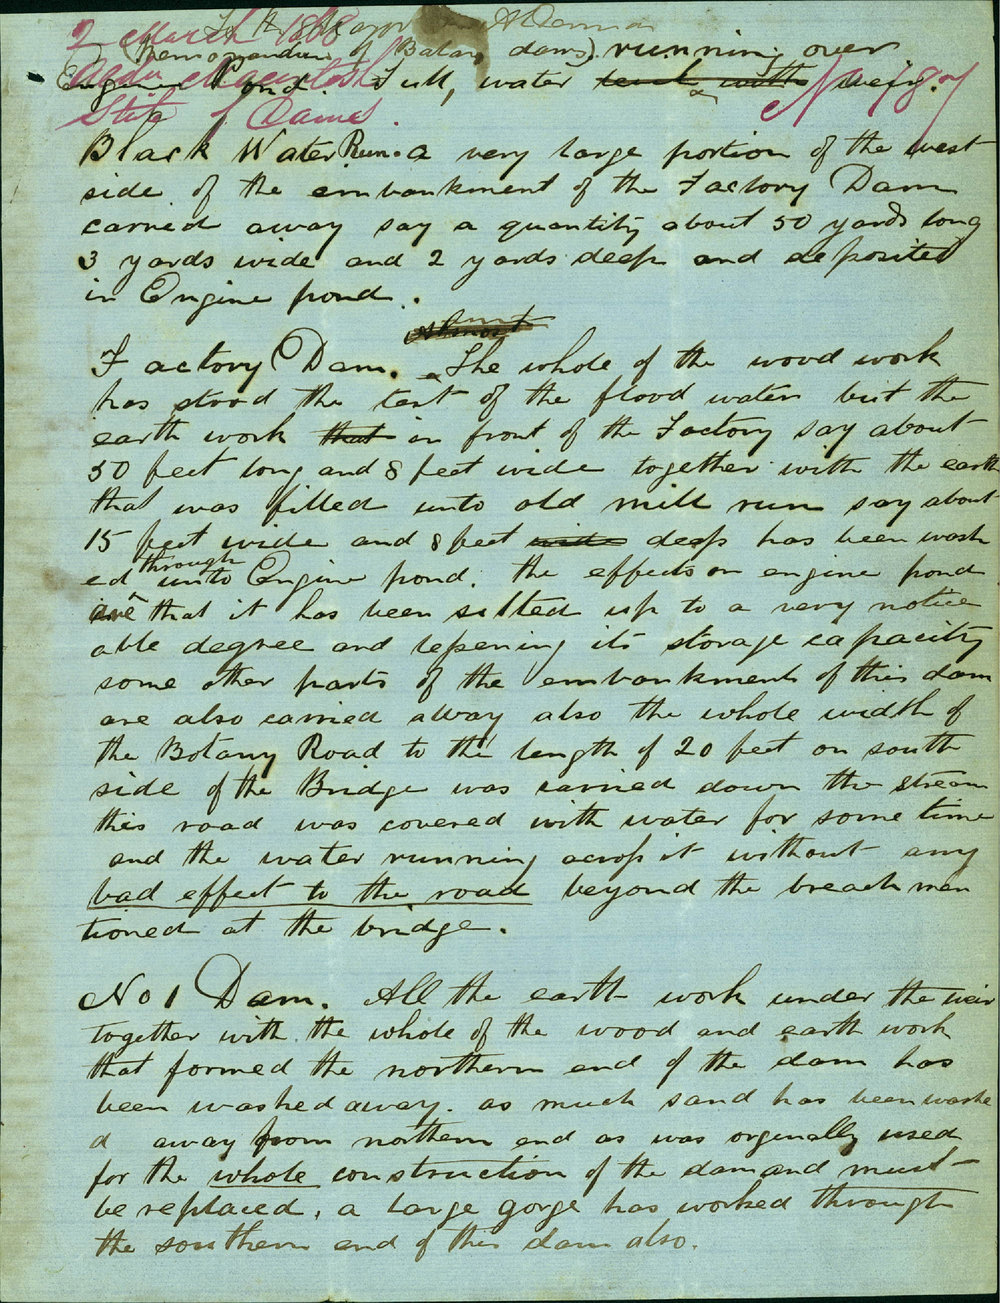 To the Mayor Aldermen
2 March 1868
Memorandum of Botany dams). running over
Engine Pond. Full, water level with weir.
Aldn Macintosh
State of Dams.
Black Water Run. a very large portion of the west
side of the embankment of the Factory Dam
carried away say a quantity about 50 yards long
3 yards wide and 2 yards deep and deposited
in Engine pond.
Almost
Factory Dam. The whole of the wood work
has stood the test of the flood water but the
earth work that in front of the Factory say about
50 feet long and 8 feet wide together with the earth
that was filled into old mill run say about
15 feet wide and 8 feet wide deep has been wash
ed through into Engine pond. the effects on engine pond
are that it has been silted up to a very notice
able degree and lessening its storage capacity
some other parts of the embankments of this dam
are also carried away also the whole width of
the Botany Road to the length of 20 feet on south
side of the Bridge was carried down the stream
this road was covered with water for some time
and the water running across it without any
bad effect to the road beyond the breach men
tioned at the bridge.
No 1 Dam. All the earth work under the weir
together with the whole of the wood and earth work
that formed the northern end of the dam has
been washed away. as much sand has been washe
d away from northern end as was orginally used
for the whole construction of the dam and must
be replaced, a large gorge has worked through
the southern end of this dam also.